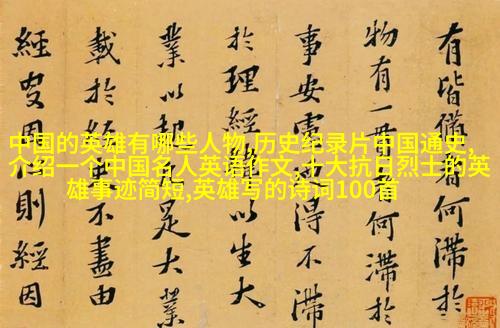 中国的英雄有哪些人物,历史纪录片中国通史,
介绍一个中国名人英语作文,十大抗日烈士的英
雄事迹简短,英雄写的诗词100首
有皆何滯於
物有一何滯於
事安得不滯
於理經以生大
業以足大業
載於不盡由
經因則經因